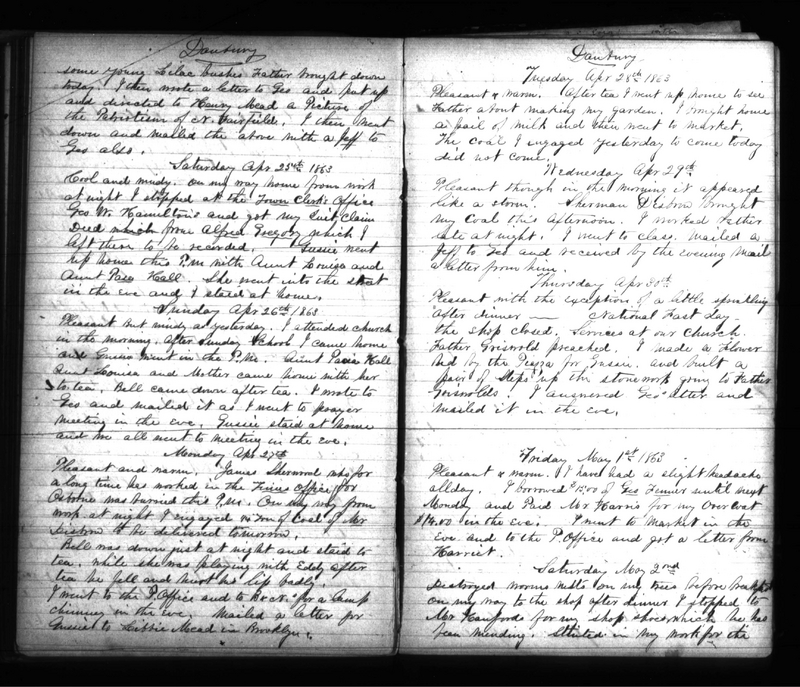 Danbury
some young Lilac bushes Father brought down
today. I then wrote a letter to Geo and put up
and directed to Henry Mead a Picture of
the Patriotism of N. Fairfield. I then went
down and mailed the above with a Jeff to
Geo also.
Saturday Apr 25th 1863
Cool and windy. On my way home from work
at night I stopped at the Town Clerk's Office
Geo W. Hamilton's and got my Quit claim
Deed which from Alfred Gregory which I
left there to be recorded. Gussie went
up home this P.M. with Aunt Louisa and
Aunt Hall. She went into the street
in the eve and I staid at home.
Sunday Apr 26th 1863
Pleasant but windy as yesterday. I attended church
in the morning. After Sunday School I came home
and Gussie went in the P.M. Aunt Hall
Aunt Louisa and Mother came home with her
to tea. Bell came down after tea. I wrote to
Geo and mailed it as I went to prayer
meeting in the eve. Gussie staid at home
and we all went to meeting in the eve.
Monday Apr 27th
Pleasant and warm. James Sherwood who for
a long time has worked in the Times Office for
Osborne was buried this P.M. On my way from
work at night I engaged Ton of Coal of Mr
to be delivered tomorrow.
Bell was down just at night and staid to
tea. While she was playing with Eddy after
tea he fell and hurt his lip badly.
I went to the P. Office and to for a Lamp
chimney in the eve Mailed a letter for
Gussie to Libbie Mead in Brooklyn.
Danbury
Tuesday Apr 28th 1863
Pleasant & warm. After tea I went up home to see
Father about making my garden. I brought home
a pail of milk and then went to market.
The coal I engaged yesterday to come today
did not come.
Wednesday Apr 29th
Pleasant though in the morning it appeared
like a storm. Sherman brought
my coal this afternoon. I worked rather
late at night. I went to class. Mailed a
Jeff to Geo and received by the evening mail
a letter from him.
Thursday Apr 30th
Pleasant with the exception of a little sprinkling
after dinner — National Fast Day —
The shop closed. Services at our church.
Father Griswold preached. I made a Flower
bed by the Piazza for Gussie. and built a
pair of Steps up the stonework going to Father
Griswolds. I answered Geo's letter and
mailed it in the eve.
Friday May 1st 1863
Pleasant & warm. I have had a slight headache
all day. I borrowed $15.00 of Geo Fenner until next
Monday and Paid Mr Harris for my Over Coat
$14.00 in the eve. I went to market in the
eve and to the P. Office and got a letter from
Harriet.
Saturday May 2nd
Destroyed worms nests on my trees before breakfast
on my way to the shop after dinner I stopped to
Mr Hanfords for my shop shoes which he has
been mending. in my work for the